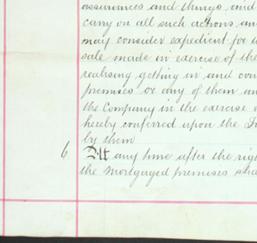 assurances and things, and
carry on all such actions and
may consider expedient for
sale made in exercise of the
realising getting in and con
premises or any of them an
the Company in the exercise o
hereby conferred upon the
by them
6 At any time after the righ
the mortgaged premises sha